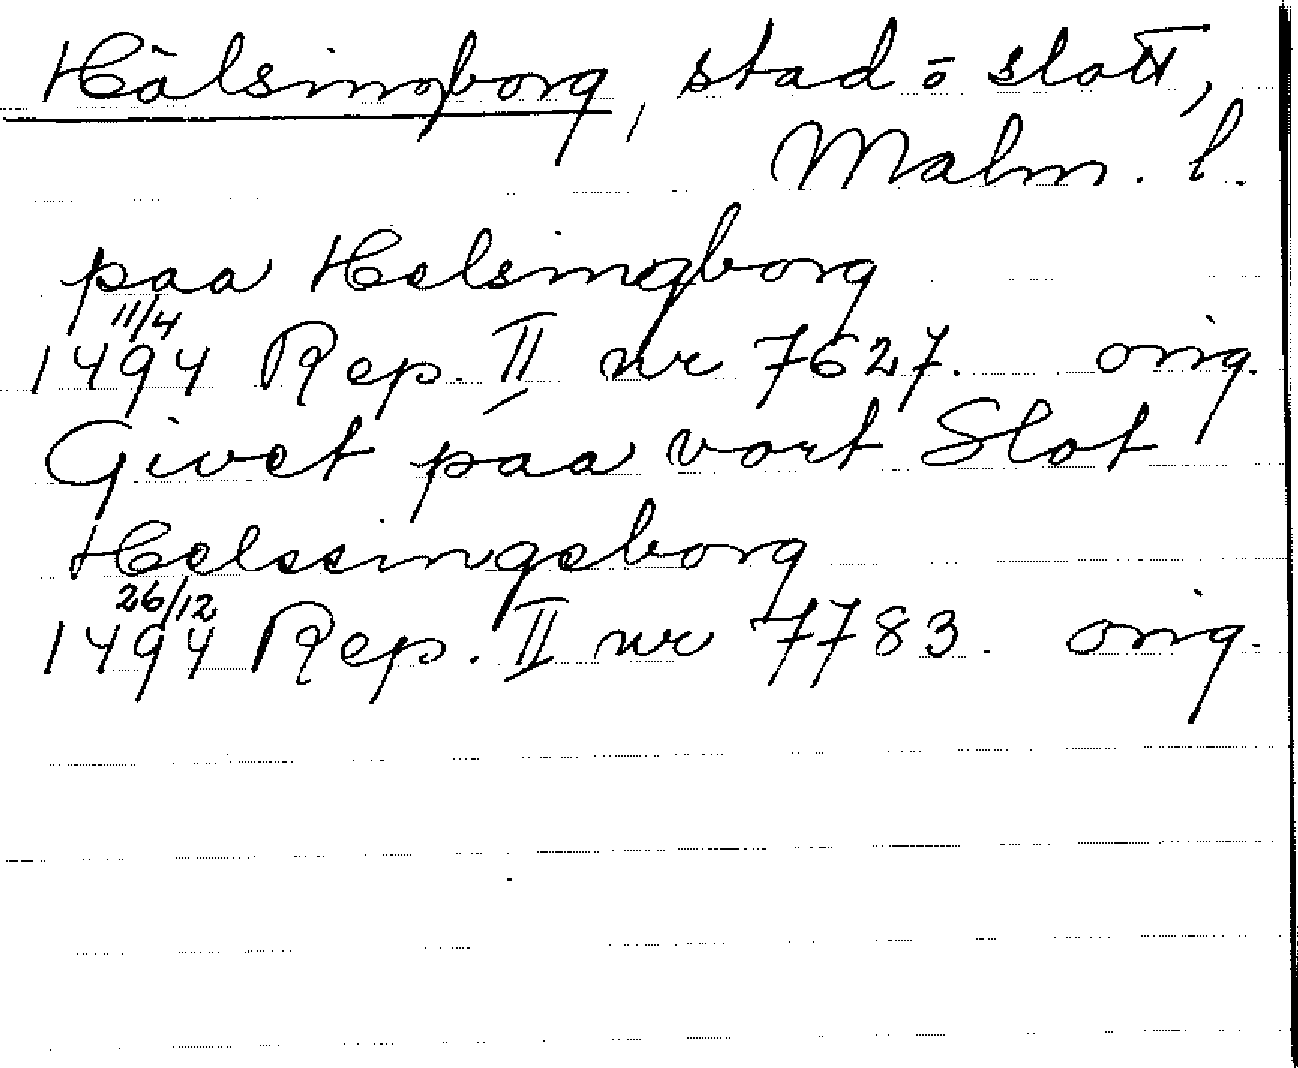 Hälsingborg, stad o slott,
Malm. l.
paa Helsingborg
11/4
1494 Rep. II nr 7627. orig.
Givet paa vort Slot
Helssingeborg
26/12
1494 Rep. II nr 7783. orig.